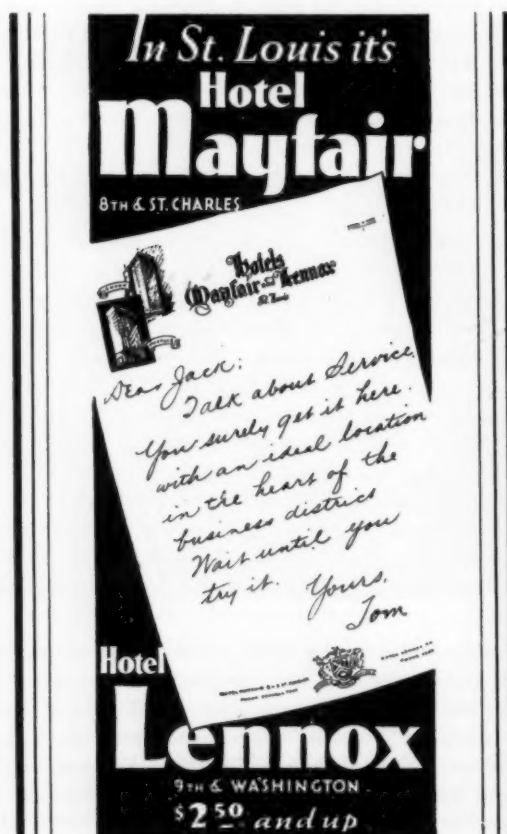 In St. Louis it's
Hotel
Mayfair
8TH & ST. CHARLES
Hotels
Mayfair and Lennox
St. Louis
Dear Jack:
Talk about Service,
You surely get it here.
with an ideal location
in the heart of the
business district
Wait until you
try it. Yours,
Tom
Hotel
Lennox
9TH & WASHINGTON
$2.50 and up